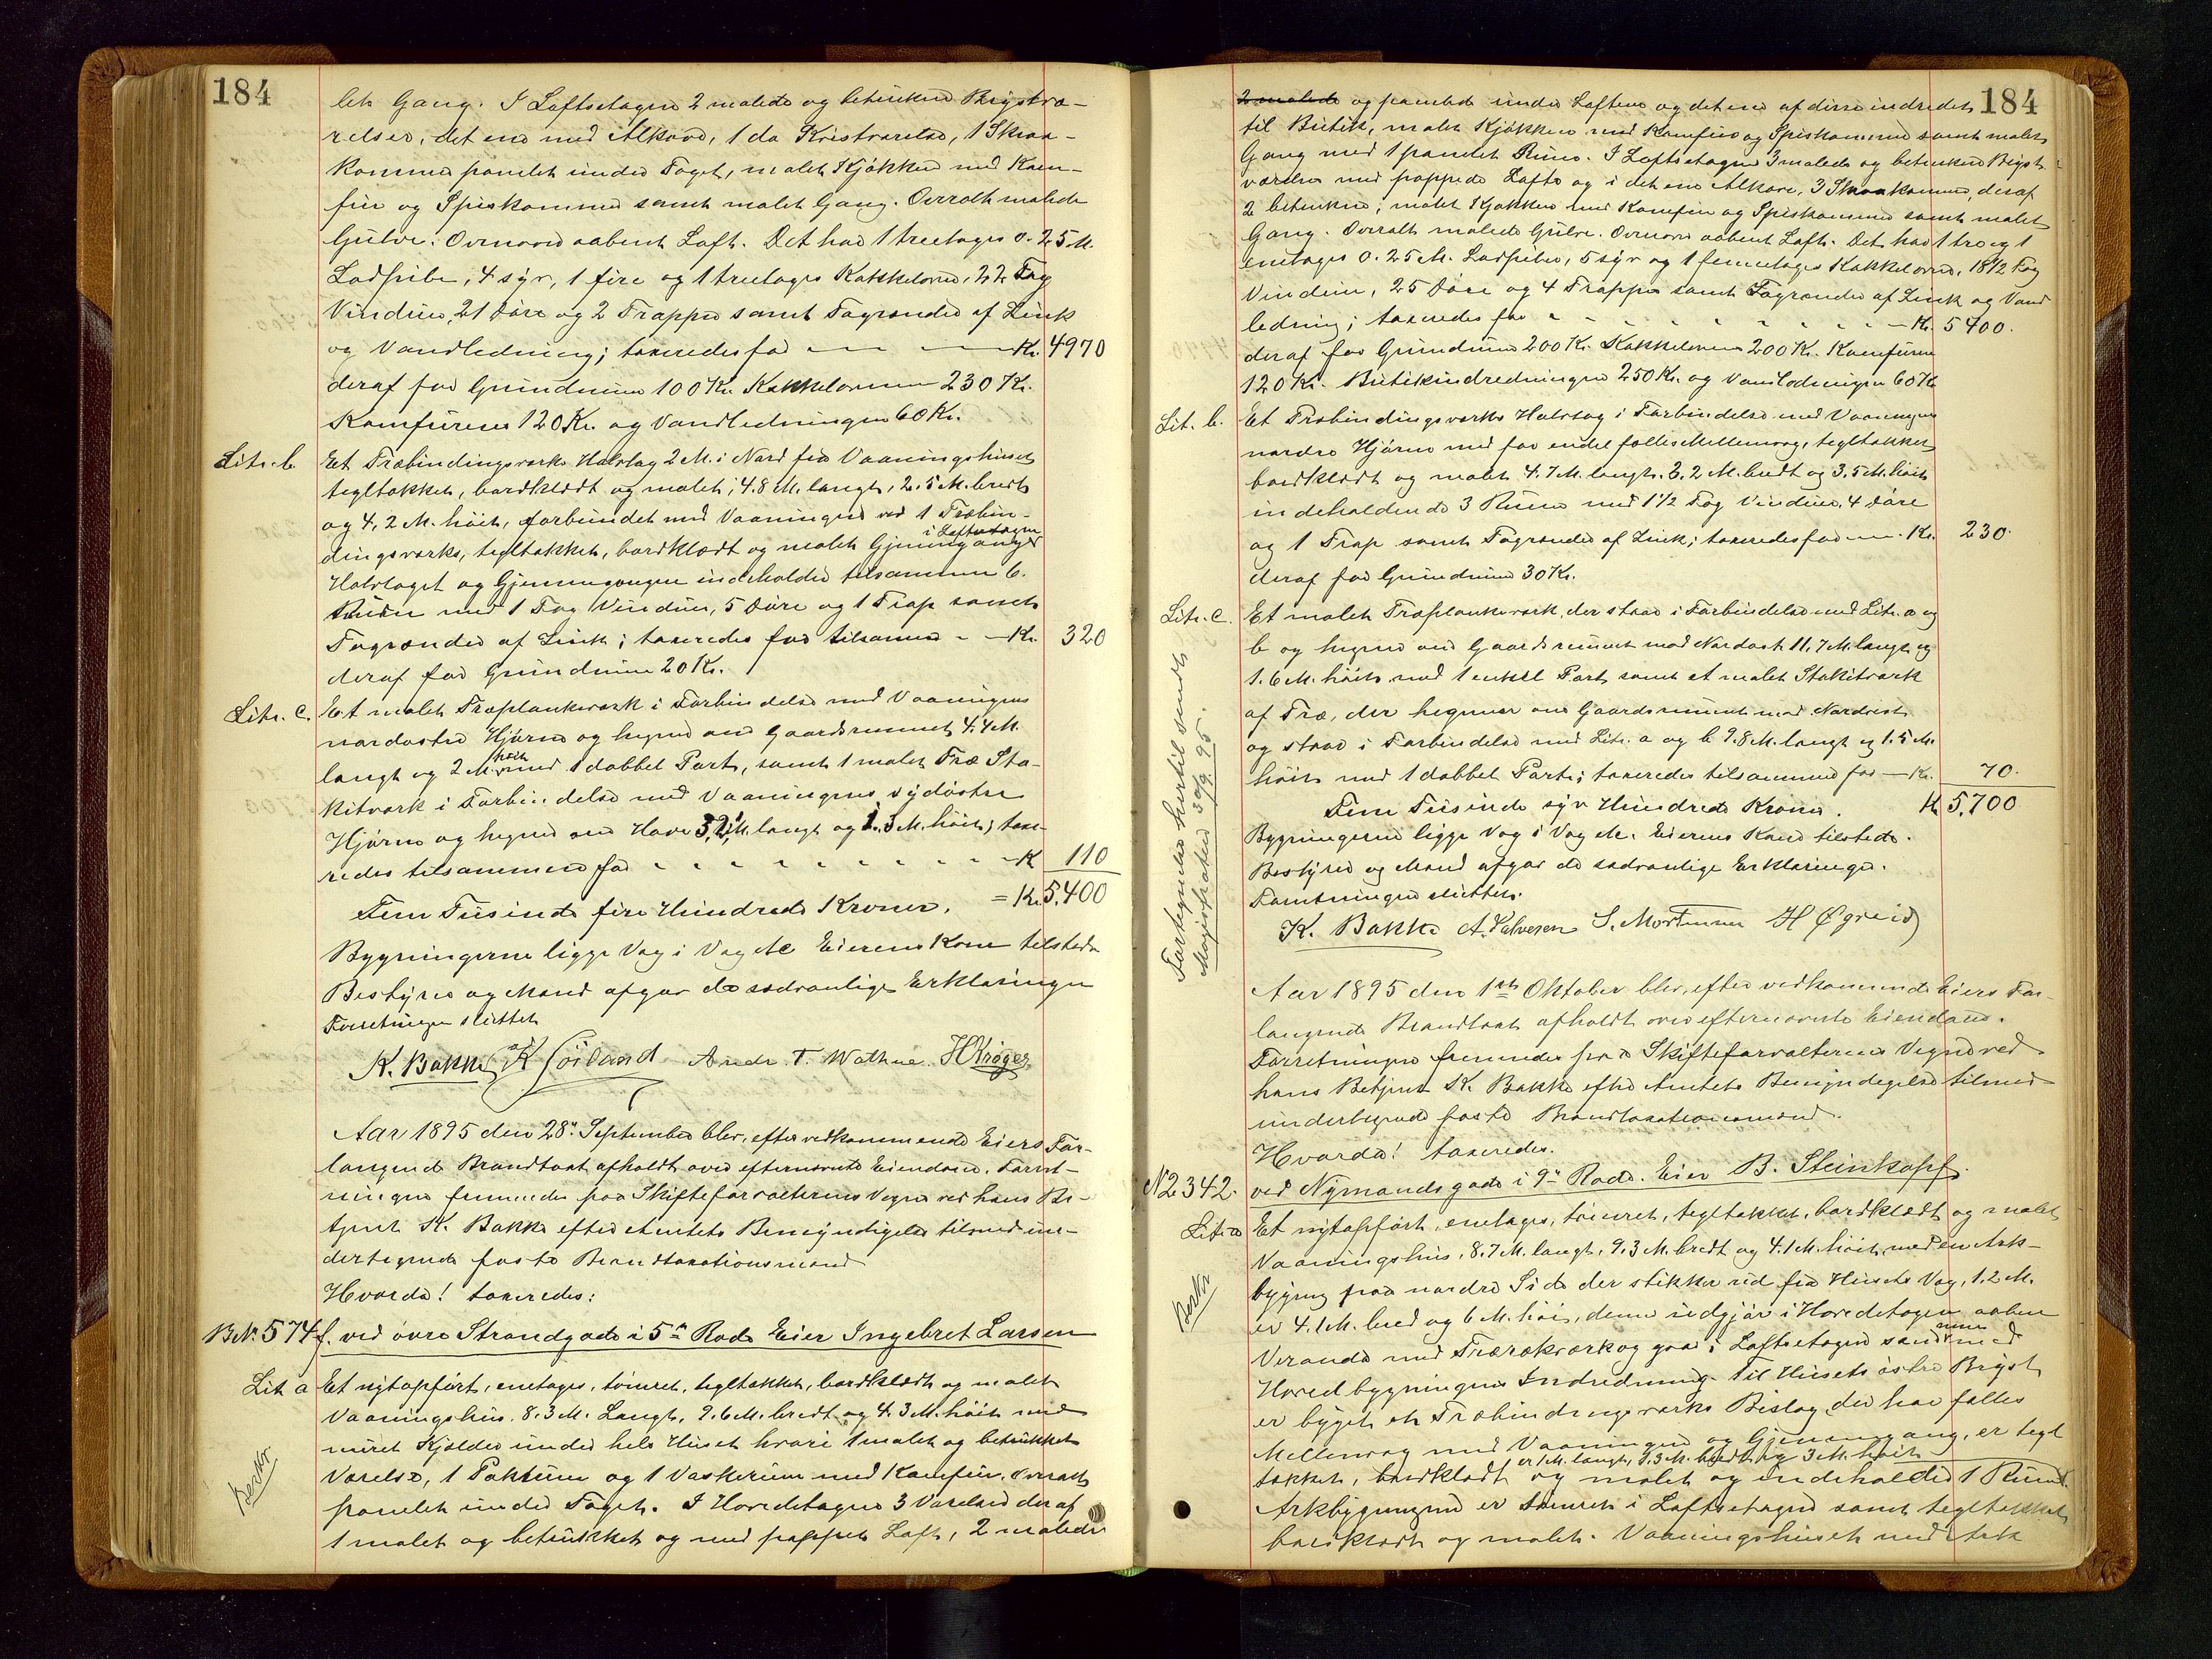 184
let Gang. I Loftsetagen 2 malede og betrukne Beqvæm-
relser, det ene med Alkove, 1 do Kvistværelse, 1 Skraa-
kammer panelet under Taget, malet Kjøkken med Kom-
fur og Spiskammer samt malet Gang. Overalt malede
Gulve. Ovenover aabent Loft. Det har 1 treetages o. 25 M.
Ladpibe, 4 syv, 1 fire og 1 treetages Kakkelovne, 22 Fag
Vinduer, 21 Døre og 2 Trapper samt Tagrender af Zink
og Vandledning; taxeredes for — — Kr. 4970
deraf for Grundmur 100 Kr. Kakkelovnene 230 Kr.
Komfurene 120 Kr. og Vandledningen 60 Kr.
Litr. b. Et Træbindingsverks Halvtag 2 M. i Nord fra Vaaningshuset
tegltækket, bordklædt og malet, 4.8 M. langt, 2.5 M. bredt
og 4,2 M. høit, forbundet med Vaaningen ved 1 Træbin-
i Loftsetagen
dingsverks, tegltækket, bordklædt og malet Gjennemgang
Halvtaget og Gjennemgangen indeholder tilsammen 6
Rum med 1 Fag Vinduer, 5 Døre og 1 Trap samt
Tagrender af Zink; taxeredes for tilsammen - Kr. 320
deraf for Grundmur 20 Kr.
Litr. c. Et malet Træplankeværk i Forbindelse med Vaaningens
nordøstre Hjørne og hegner om Gaardsrummet 4.4 M.
langt og 2 M. høit med 1 dobbel Port, samt 1 malet Træ Sta-
kitværk i Forbindelse med Vaaningens sydøstre
Hjørne og hegner om Have 3,2 M. langt og 1.3 M. høit; taxe-
redes tilsammen for - - - - Kr 110
Fem Tusinde fire Hundrede Kroner. = Kr. 5,400
Bygningerne ligge Væg i Væg etc Eierens Kone tilstede
Bestyrer og Mænd afgav de sædvanlige Erklæringer
Forretningen sluttet
K. Bakke K Söiland Andr. T. Wathne. H Krøger.
Aar 1895 den 28. September blev, efter vedkommende Eiers For-
langende Brandtaxt afholdt over efternævnte Eiendom. Forret-
ningen fremmedes paa Skifteforvalterens Vegne ved hans Be-
tjent K. Bakke efter Amtets Bemyndigelse tilmed un-
dertegnede faste Brandtaxationsmænd
Hvorda! taxeredes:
B.No. 574 f. ved øvre Strandgade i 5te Rode Eier Ingebret Larsen
Lit a Et nyopført, enetages, tømret, tegltækket, bordklædt og malet
Vaaningshus. 8.3 M. Langt, 9.6 M. bredt og 4.3 M. høit med
muret Kjelder under hele Huset hvori 1 malet og betrukket
Værelse, 1 Pakrum og 1 Vaskerum med Komfur, overalt
panelet under Taget. I Hovedetagen 3 Værelser deraf
1 malet og betrukket og med pappet Loft, 2 malede
184
2 malede og panelede under Loftene og det ene af disse indredet
til Butik, malet Kjøkken med Komfur og Spiskammer samt malet
Gang med 1 panelet Rum. I Loftsetagen 3 malede og betrukne Bryst-
værelser med pappede Lofte og i det ene Alkove, 3 Skraakammer, deraf
2 betrukne; malet Kjøkken med Komfur og Spiskammer samt malet
Gang. Overalt malede Gulve. Ovenover aabent Loft. Det har 1 tre og 1
enetages o. 25 M. Ladpiber, 5 syv og 1 femetages Kakkelovne, 18½ Fag
Vinduer, 25 Døre og 4 Trapper samt Tagrender af Zink og Vand
ledning; taxeredes for - - - - Kr. 5400.
deraf for Grundmur 200 Kr. Kakkelovnene 200 Kr. Komfurene
120 Kr. Butikindredningen 250 Kr. og Vandledningen 60 Kr
Lit. b. Et Træbindingsverks Halvtag i Forbindelse med Vaaningens
nordre Hjørne med for endel fælles Mellemvæg, tegltækket
bordklædt og malet 4.7 M. langt. 3.2 M. bredt og 3.5 M. høit
indeholdende 3 Rum med 1½ Fag Vinduer, 4 Døre
og 1 Trap samt Tagrender af Zink; taxeredes for — Kr. 230.
deraf for Grundmur 30 Kr.
Litr. c. Et malet Træplankeverk, der staar i Forbindelse med Litr. a og
b og hegner om Gaardsrummet mod Nordost 11.7 M. langt og
1.6 M. høit med 1 enkel Port samt et malet Stakitværk
af Træ, der hegner om Gaardsrummet mod Nordvest
og staar i Forbindelse med Litr. a og b 9.8 M. langt og 1.5 M.
høit med 1 dobbel Port; taxeredes tilsammen for — Kr. 70.
Fem Tusinde syv Hundrede Kroner. Kr 5,700
Bygningerne ligge Væg i Væg etc. Eierens Kone tilstede.
Bestyrer og Mænd afgav de sædvanlige Erklæringer.
Forretningen sluttet.
K. Bakke A. Salvesen S. Mortensen H Øgreid
Fortegnelse hertil sendt
Magistraten 30/9. 95.
Aar 1895 den 1ste Oktober blev, efter vedkommende Eiers For-
langende Brandtaxt afholdt over efternævnte Eiendom.
Forretningen fremmedes paa Skifteforvalterens Vegne ved
hans Betjent K. Bakke efter Amtets Bemyndigelse tilmed
undertegnede faste Brandtaxationsmænd.
Hvorda! taxeredes.
No 342. ved Nymandsgade i 9de Rode. Eier B. Steinkopf.
Lit. a Et nyopført, enetages, tømret, tegltækket, bordklædt og malet
Vaaningshus, 8.7 M. langt, 9.3 M. bredt og 4.1 M. høit, med en Ark-
bygning paa nordre Side der stikker ud fra Husets Væg, 1.2 M.
er 4.1 M. bred og 6 M. høi, denne udgjør i Hovedetagen aaben
Veranda med Trærækværk og gaar i Loftsetagen sammen med
Hovedbygningens Indredning. Til Husets østre Bryst
er bygget et Træbindingsverks Bislag, der har fælles
Mellemvæg med Vaaningen og Gjennemgang, er tegl
er 1 M. langt, 1.3 M. bredt og 3 M. høit
tækket, bordklædt og malet og indeholder 1 Rum.
Arkbygningen er tømret i Loftsetagen samt tegltækket
bordklædt og malet. Vaaningshuset med Ark